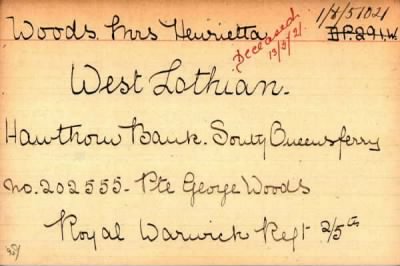 Woods Mrs Henrietta
Deceased
13/3/21
1/8/51021
D.P.291.W.
West Lothian.
Hawthorn Bank. South Queensferry
No. 202555 - Pte George Woods
Royal Warwick Regt 2/5th